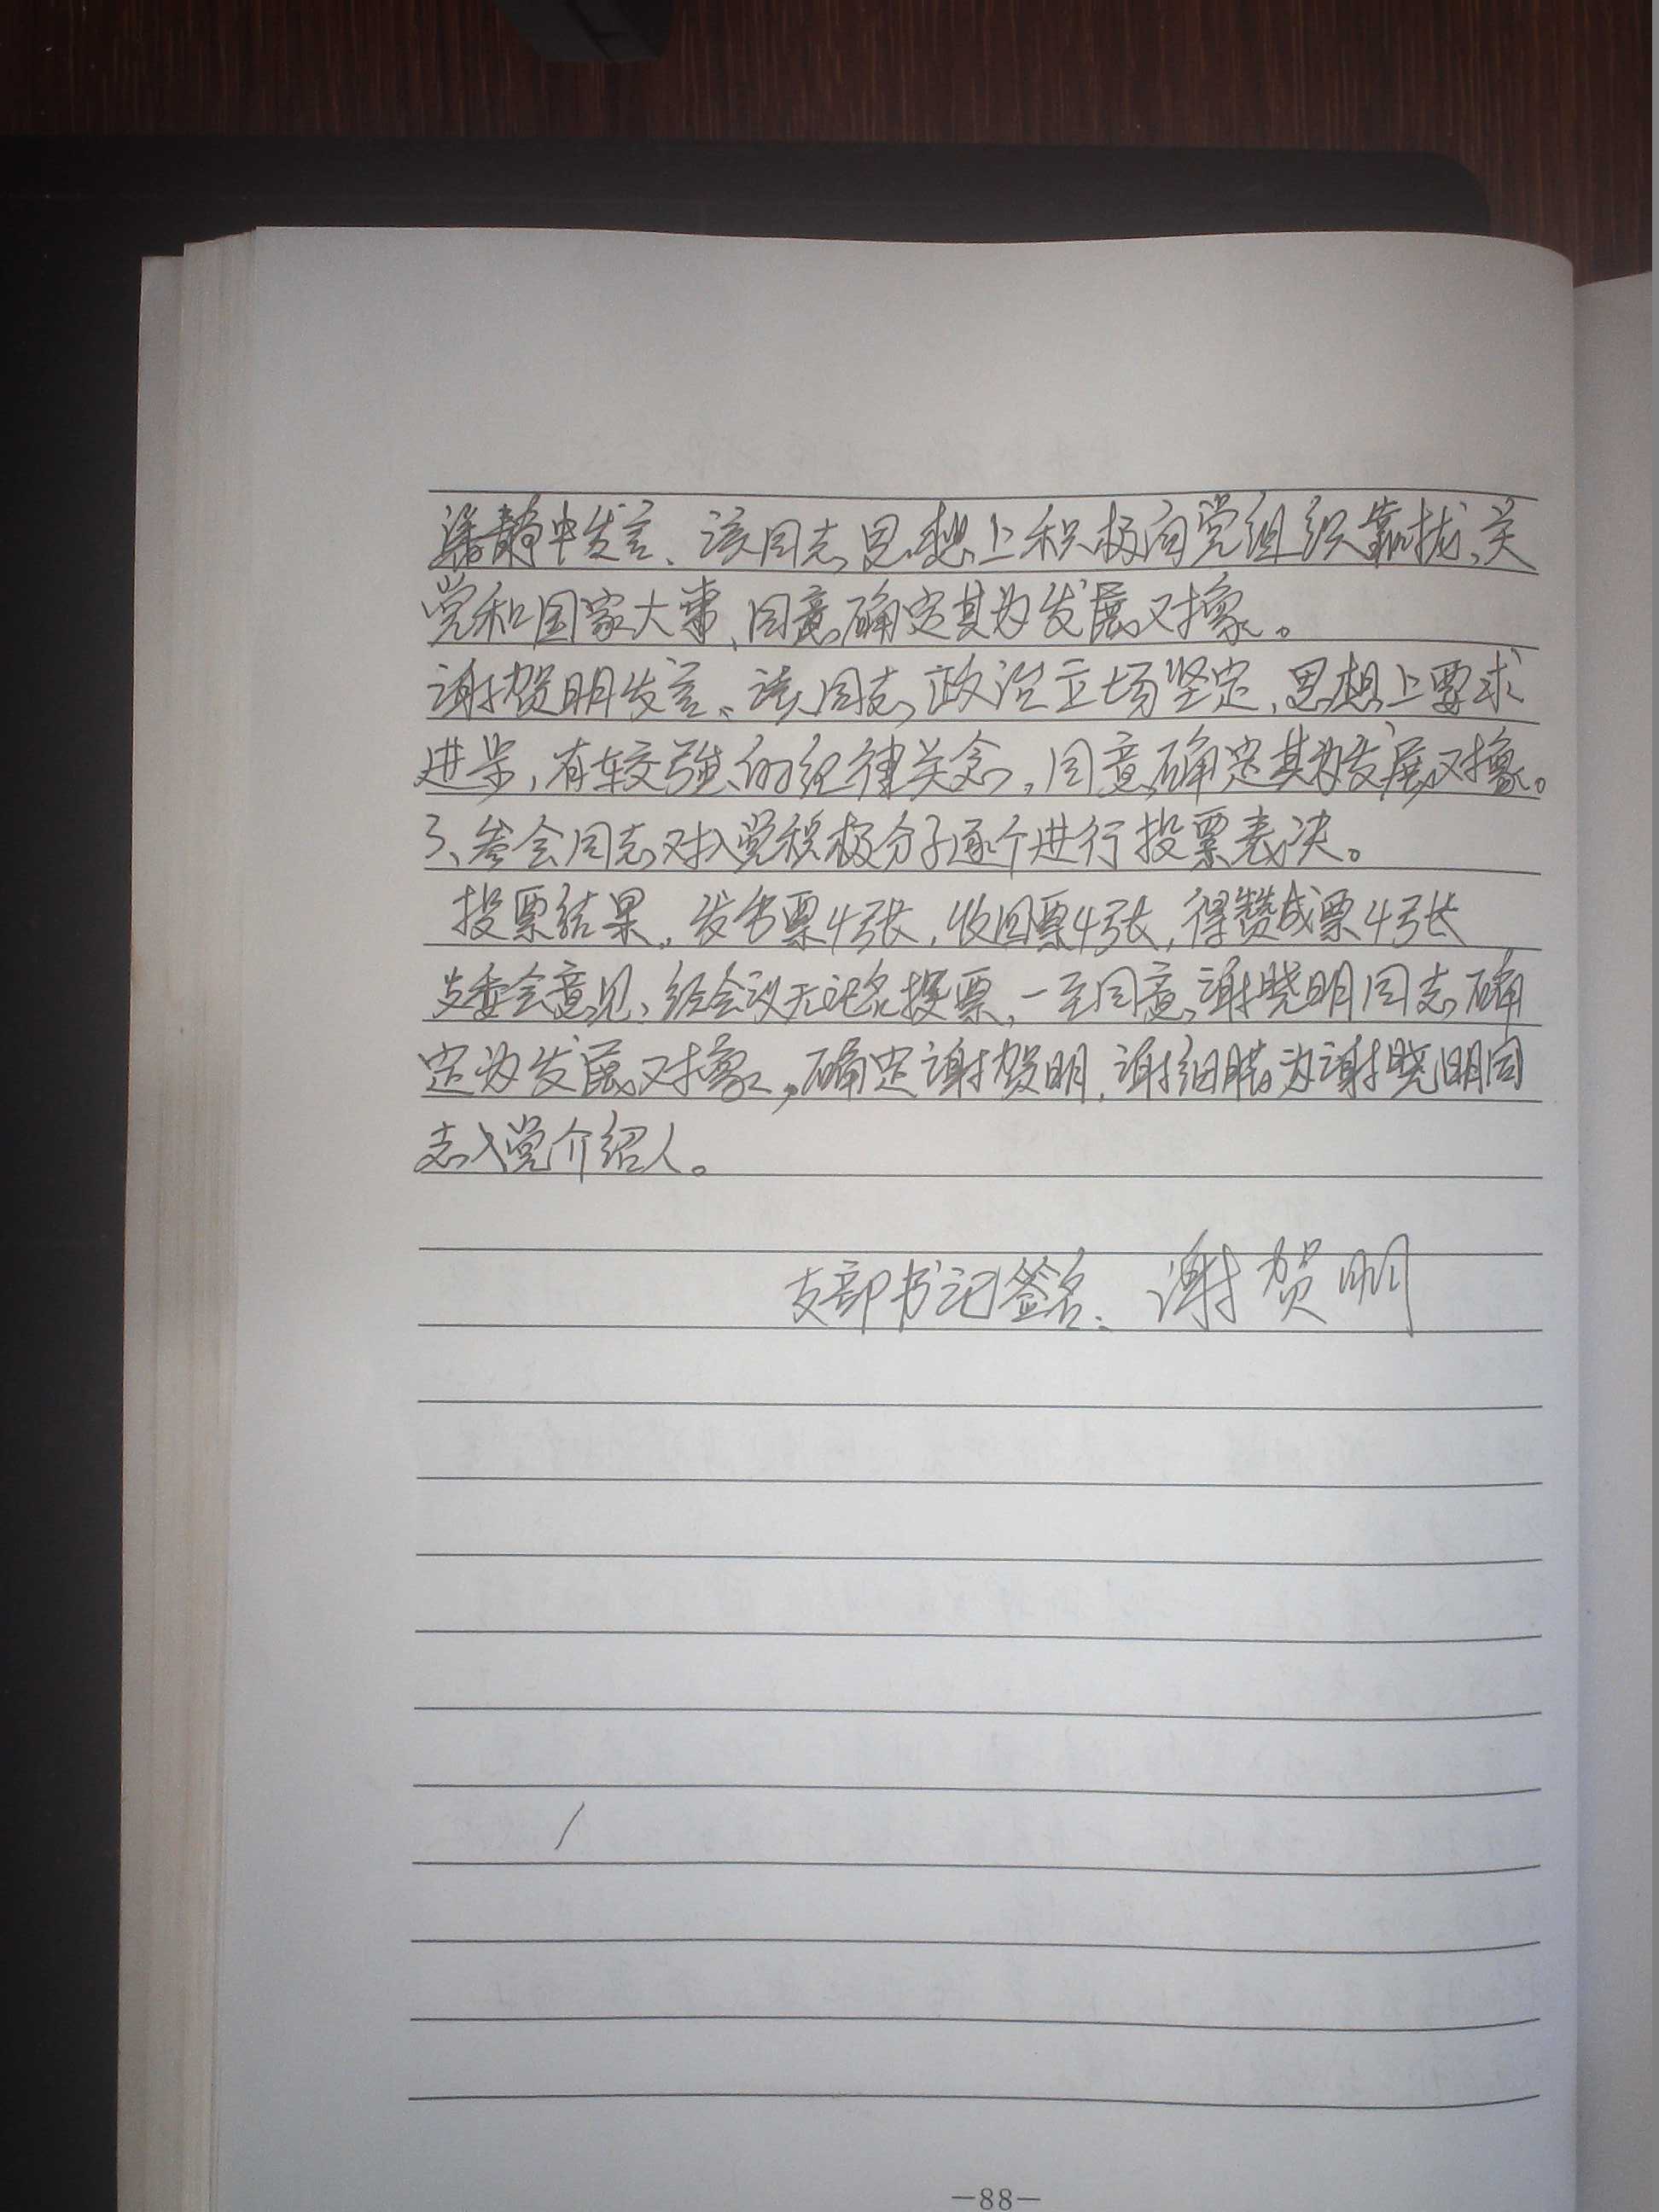 静中发言、该同志思想上积极向党组织靠拢、关
党和国家大事、同意确定其为发展对象。
谢贺明发言、该同志政治立场坚定、思想上要求
进步，有较强的纪律关念，同意确定其为发展对象。
3、参会同志对入党积极分子逐个进行投票表决。
投票结果，发出票4张，收回票4张，得赞成票4张
支委会意见、经会议无记名投票，一至同意谢晓明同志确
定为发展对象，确定谢贺明、谢细腊为谢晓明同
志入党介绍人。
支部书记签名：谢贺明
—88—